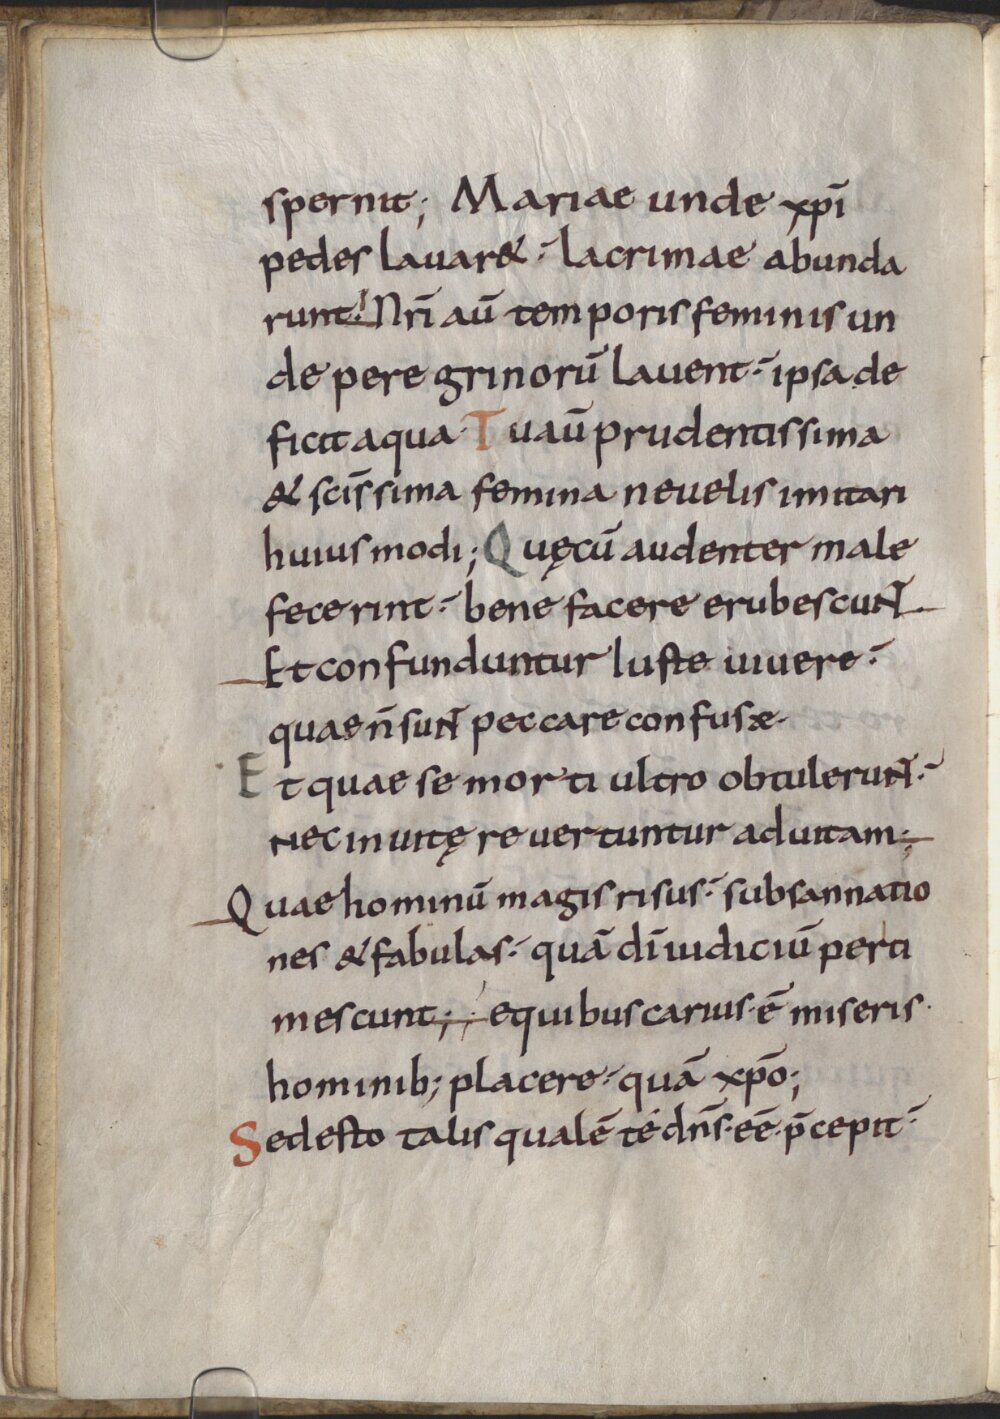 spernit; Mariae unde xp̄i
pedes lauar& · lacrimae abunda
runt! Nr̄i aū temporis feminis un
de peregrinorū lauent · ipsa de
ficit aqua Tua aū prudentissima
& scīssima femina neuelis imitari
huiusmodi; Quęcū audenter male
fecerint · bene facere erubescunt
Et confunduntur Iuste uiuere ·
quae n̄ sunt peccare confusæ ·
Et quae se morti ultro obtulerunt ·
nec inuitę reuertuntur ad uitam;
Quae hominū magis risus · subsannatio
nes & fabulas · quā dī iudiciū perti
mescunt; equibus carius · ē miseris ·
hominib; placere · quā xp̄o;
Sed esto talis qualē té dn̄s · eē · p̄cepit ·